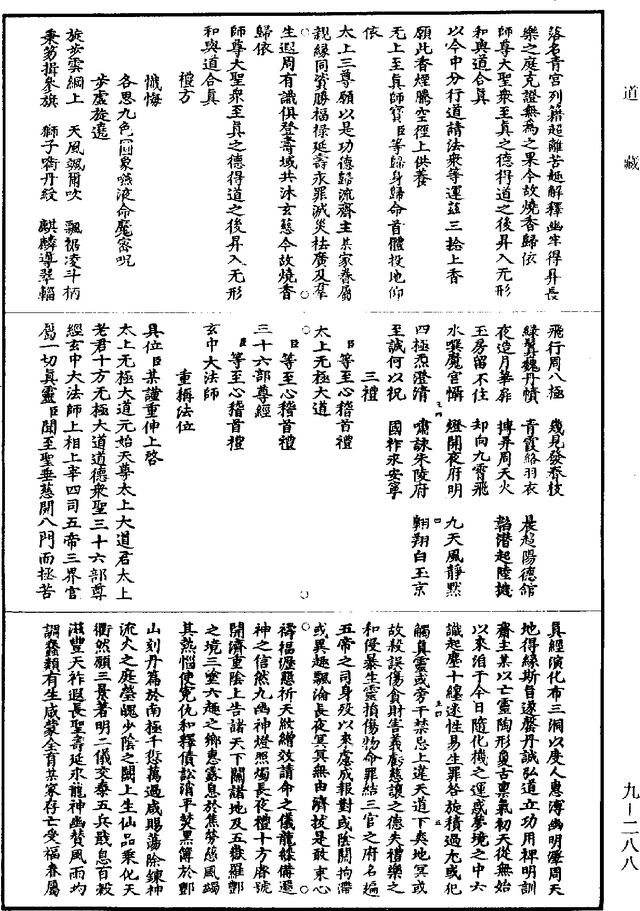 道藏
落名青宮列籍超離苦趣解釋幽牢得昇長
樂之庭克證無為之果今故燒香歸依
師尊大聖衆至真之德得道之後昇入无形
和與道合真
以今中分行道請法衆等運茲三捻上香
願此香煙騰空徑上供養
无上至真師寳臣等歸身歸命首體投地仰
依
太上三尊願以是功德歸流齋主某家眷屬
親緣同資勝福祿延壽永罪滅災袪廣及羣
生遐周有識俱登壽域共沐玄慈今故燒香
歸依
師尊大聖衆至真之德得道之後昇入无形
和與道合真
禮方
懺悔
各思九色圓象嚥液命魔密呪
步虛旋遶
旋步雲綱上　天風颯爾吹　飄裾凌斗柄
秉笏揖參旗　獅子銜丹紋　麒麟導翠輜
飛行周八極　幾見發春枝
綠鬢巍丹幘　青霞絡羽衣　晨趨陽德館
夜造月華扉　搏弄周天火　韜潛起陸機
玉房留不住　却向九霄飛
水噀魔宮懾　燈開夜府明　九天風靜默
四極炁澄清　嘯詠朱陵府　翱翔白玉京
至誠何以祝　國祚永安寧
三禮
臣等至心稽首禮
太上无極大道
臣等至心稽首禮
三十六部尊經
臣等至心稽首禮
玄中大法師
重稱法位
具位臣某謹重伸上啓
太上无極大道元始天尊太上大道君太上
老君十方无極大道道德衆聖三十六部尊
經玄中大法師上相上宰四司五帝三界官
屬一切真靈臣聞至聖垂慈開八門而拯苦
真經演化布三洞以度人恩溥幽明澤周天
地得緣斯自遂罄丹誠弘道立功用稗明訓
齋主某以亡靈陶形夐古稟氣初天從無始
以來洎于今日隨化機之運惑夢境之中六
識起塵十纏迷性易生罪咎旋積過尤或犯
觸真靈或旁干禁忌上違天道下夾地冥或
故殺誤傷貪財害義虧慈讓之德失禮樂之
和侵暴生靈損傷物命罪結三官之府名遍
五帝之司身歿以來慮成報對或陰關拘滯
或異趣飄淪長夜冥冥無由濟拔是敢束心
禱福瀝懇祈天紋繒效請命之儀龍錄備還
神之信然九幽神燈照燭長夜禮十方睿號
開濟重陰上告諸天下關諸地及五嶽羅酆
之境三塗六趣之鄉惠露息於焦勞慈風蠲
其熱惱使冤仇和釋債訟消平焚黑簿於酆
山刻丹篇於南極千愆萬過咸賜蕩除鍊神
流火之庭瑩魄少陰之闕上生仙品乘化天
衢然願三景著明二儀交泰五兵戢息百穀
滋豐天祚遐長聖壽延永龍神幽贊風雨均
調蠢類有生咸蒙全育某家存亡受福眷屬
九—二八八